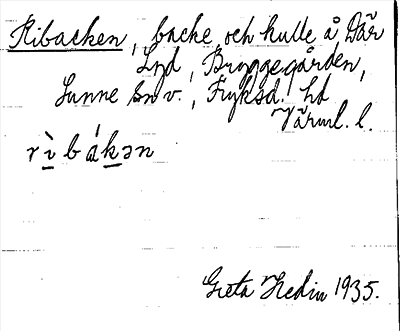 Ribacken, backe och kulle å Där
Lyd, Bryggegården,
Sunne sn v., Fryksd. hd
Värml. l.
rìbákən
Greta Hedin 1935.